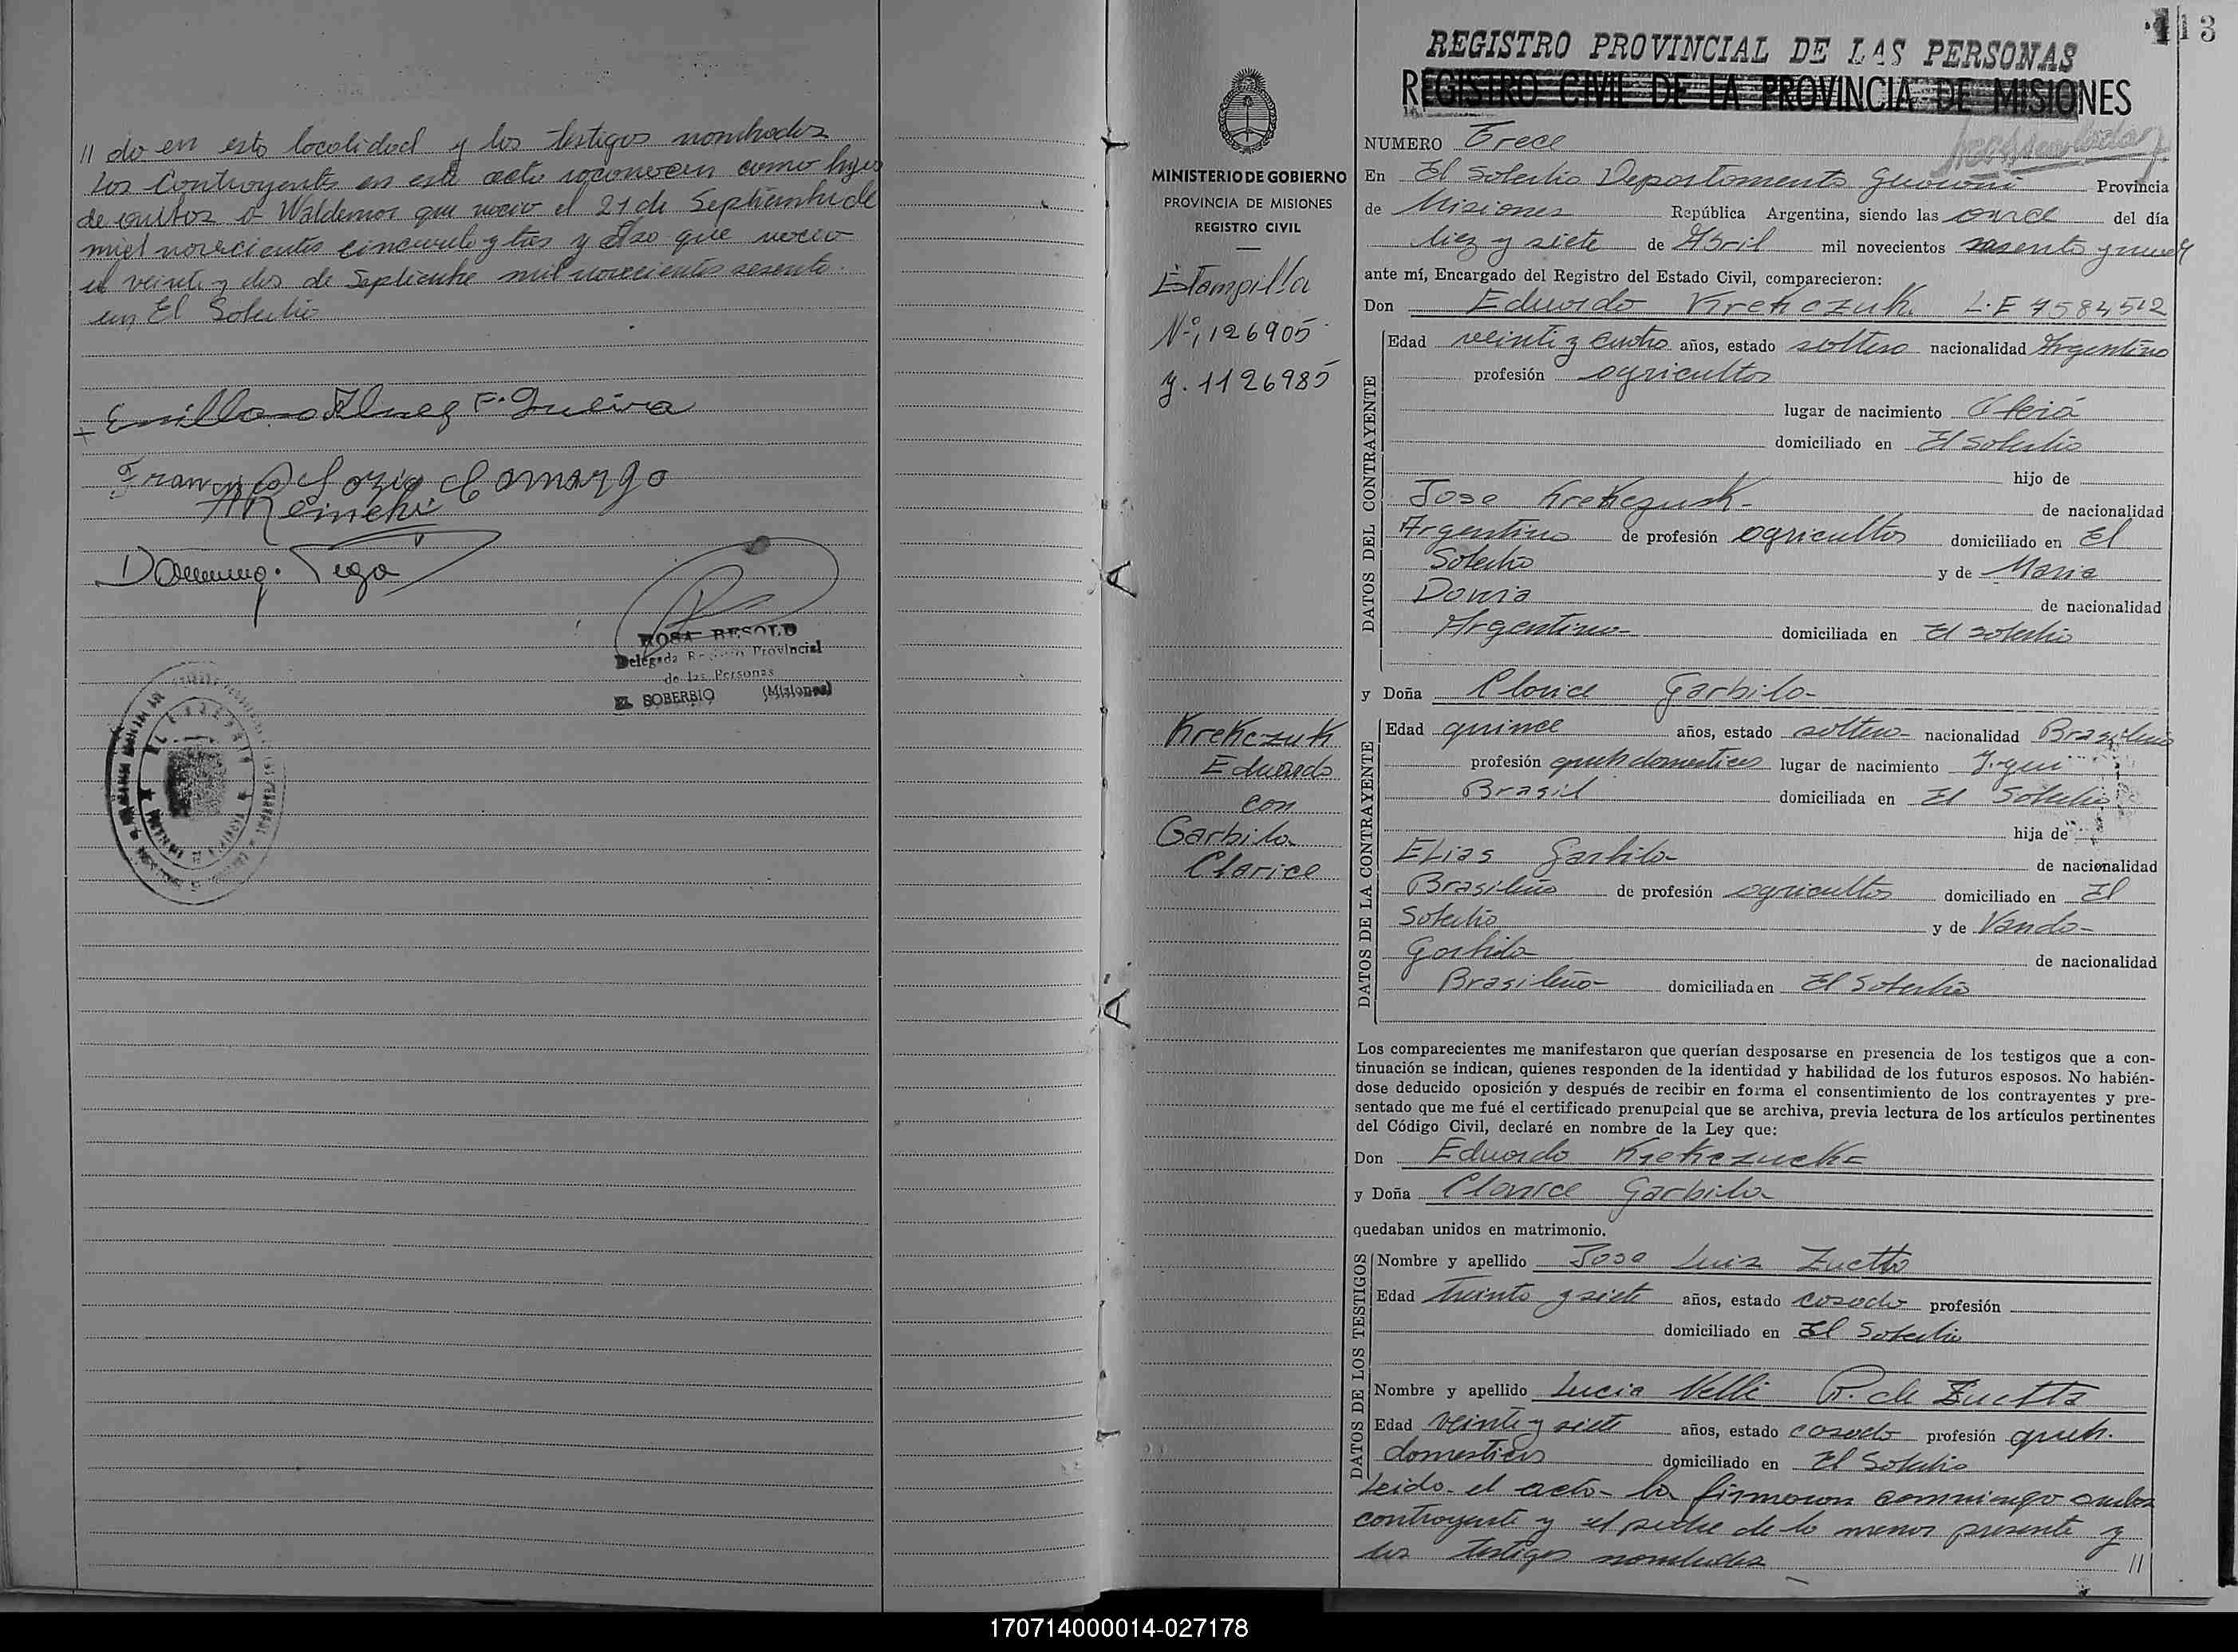 // do en esta localidad y los testigos nombrados
los Contrayentes en este acto reconocen como hijos
de ambos a Waldemar que nacio el 21 de Septiembre de
miel novecientos cincuenta y tres y que nacio
el veinte y dos de Septiembre mil novecientos sesenta
en El Soberbio
Camargo
Reineke
Doming. Vega
ROSA BESOLD
Delegada Registro Provincial
de las Personas
EL SOBERBIO (Misiones)
MINISTERIO DE GOBIERNO
PROVINCIA DE MISIONES
REGISTRO CIVIL
Estampilla
Nº; 126905
y. 1126985
Krekczuk
Eduardo
con
Garbila
Clarice
113
REGISTRO PROVINCIAL DE LAS PERSONAS
REGISTRO CIVIL DE LA PROVINCIA DE MISIONES
NUMERO Trece
En El Soberbio Departamento Guarani Provincia
de Misiones República Argentina, siendo las once del día
diez y siete de Abril mil novecientos sesenta y nueve
ante mí, Encargado del Registro del Estado Civil, comparecieron:
Don Eduardo Krekczuk L.E 7584512
DATOS DEL CONTRAYENTE
Edad veinti y cuatro años, estado soltero nacionalidad Argentino
profesión agricultor
lugar de nacimiento Oberá
domiciliado en El Soberbio
hijo de
Jose Krekczuk de nacionalidad
Argentino de profesión agricultor domiciliado en El
Soberbio y de Maria
Dowia de nacionalidad
Argentina domiciliada en El Soberbio
y Doña Clarice Garbila
DATOS DE LA CONTRAYENTE
Edad quince años, estado soltera nacionalidad Brasileña
profesión queh domesticos lugar de nacimiento
Brasil domiciliada en El Soberbio
hija de
Elias Garbila de nacionalidad
Brasileño de profesión agricultor domiciliado en El
Soberbio y de Vanda
Garbila de nacionalidad
Brasileña domiciliada en El Soberbio
Los comparecientes me manifestaron que querían desposarse en presencia de los testigos que a con-
tinuación se indican, quienes responden de la identidad y habilidad de los futuros esposos. No habién-
dose deducido oposición y después de recibir en forma el consentimiento de los contrayentes y pre-
sentado que me fué el certificado prenupcial que se archiva, previa lectura de los artículos pertinentes
del Código Civil, declaré en nombre de la Ley que:
Don Eduardo Krekczuck
y Doña Clarice Garbila
quedaban unidos en matrimonio.
DATOS DE LOS TESTIGOS
Nombre y apellido Jose Luis Zuetta
Edad treinta y siete años, estado casado profesión
domiciliado en El Soberbio
Nombre y apellido Lucia Nelli R. de Zuetta
Edad veinte y siete años, estado casada profesión queh.
domesticos domiciliado en El Soberbio
Leido el acta la firmaron conmigo ambos
contrayente y el padre de la menor presente y
los testigos nombrados //
170714000014-027178